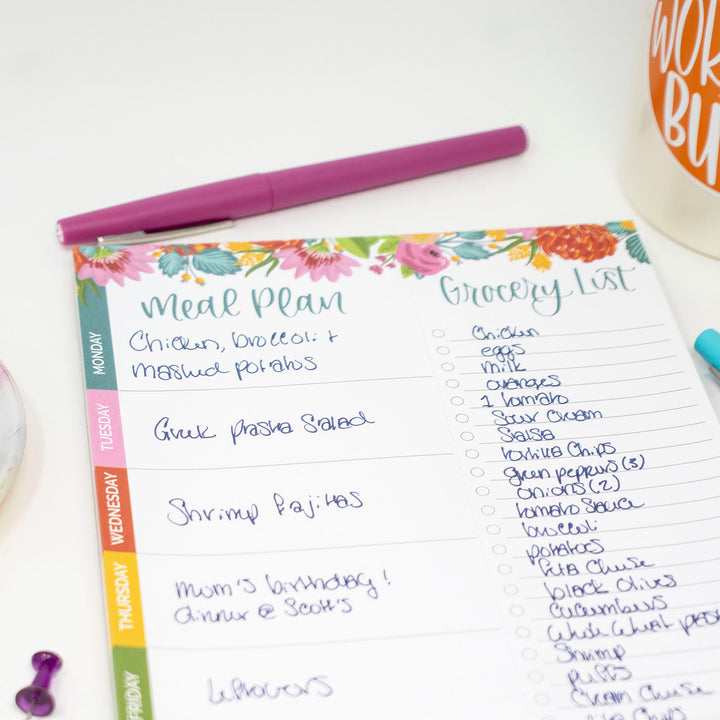 WOR
BU
Meal Plan
Grocery List
MONDAY
Chicken, broccoli +
mashed potatos
TUESDAY
Greek pasta Salad
WEDNESDAY
Shrimp Fajitas
THURSDAY
mom's birthday!
dinner @ Scott's
FRIDAY
leftovers
Chicken
eggs
milk
oranges
1 tomato
Sour Cream
Salsa
tortilla Chips
green peppers (3)
onions (2)
tomato Sauce
broccoli
potatoes
Feta Cheese
black Olives
Cucumbers
Whole Wheat pas
Shrimp
puffs
Cream Cheese
Pita Chips